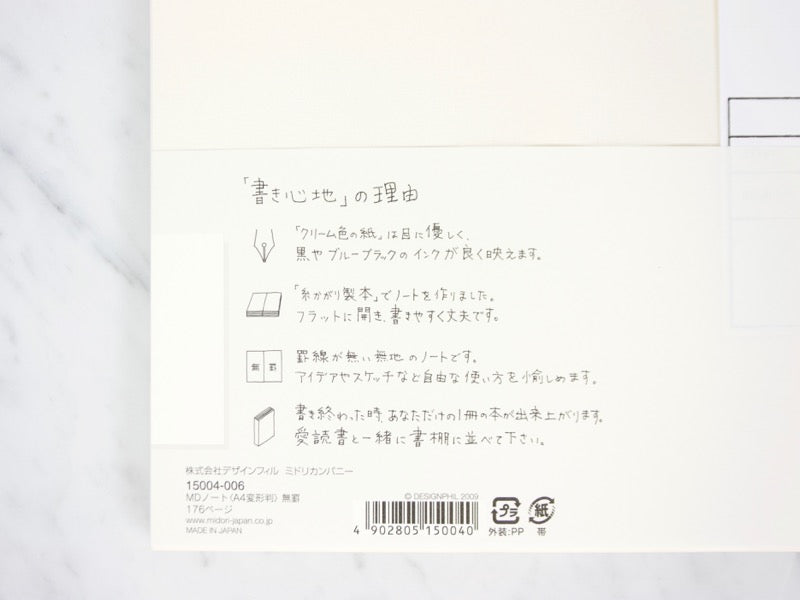 「書き心地」の理由
「クリーム色の紙」は目に優しく、
黒やブルーブラックのインクが良く映えます。
「糸かがり製本」でノートを作りました。
フラットに開き、書きやすく丈夫です。
無 罫
罫線が無い無地のノートです。
アイデアやスケッチなど自由な使い方を愉しめます。
書き終わった時、あなただけの1冊の本が出来上がります。
愛読書と一緒に書棚に並べて下さい。
株式会社デザインフィル ミドリカンパニー
15004-006
MDノート〈A4変形判〉無罫
176ページ
www.midori-japan.co.jp
MADE IN JAPAN
© DESIGNPHIL 2009
4 902805 150040
プラ
外装:PP
紙
帯